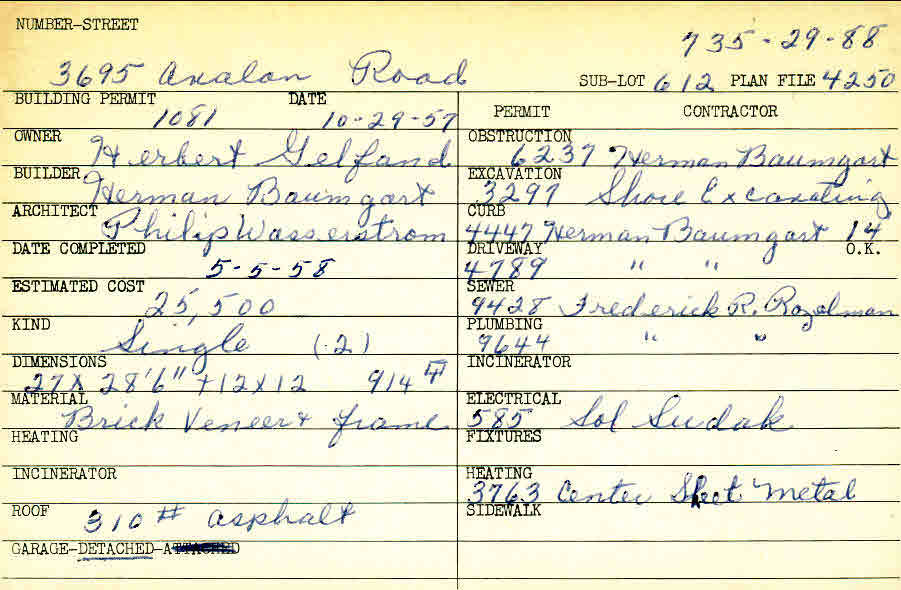 NUMBER-STREET
735-29-88
3695 Avalon Road
SUB-LOT 612 PLAN FILE 4250
BUILDING PERMIT DATE
1081 10-29-57
OWNER Herbert Gelfand
BUILDER Herman Baumgart
ARCHITECT Philip Wasserstrom
DATE COMPLETED
5-5-58
ESTIMATED COST
25,500
KIND
Single (2)
DIMENSIONS
27 X 28'6" + 12 X 12 914
MATERIAL
Brick Veneer & frame
HEATING
INCINERATOR
ROOF 310 # asphalt
GARAGE-DETACHED-ATTACHED
PERMIT CONTRACTOR
OBSTRUCTION
6237 Herman Baumgart
EXCAVATION
3297 Shore Excavating
CURB
4447 Herman Baumgart 14
DRIVEWAY O.K.
4789 " "
SEWER
9428 Frederick R. Rozelman
PLUMBING
9644 " "
INCINERATOR
ELECTRICAL
585 Sol Sudak
FIXTURES
HEATING
3763 Center Sheet Metal
SIDEWALK